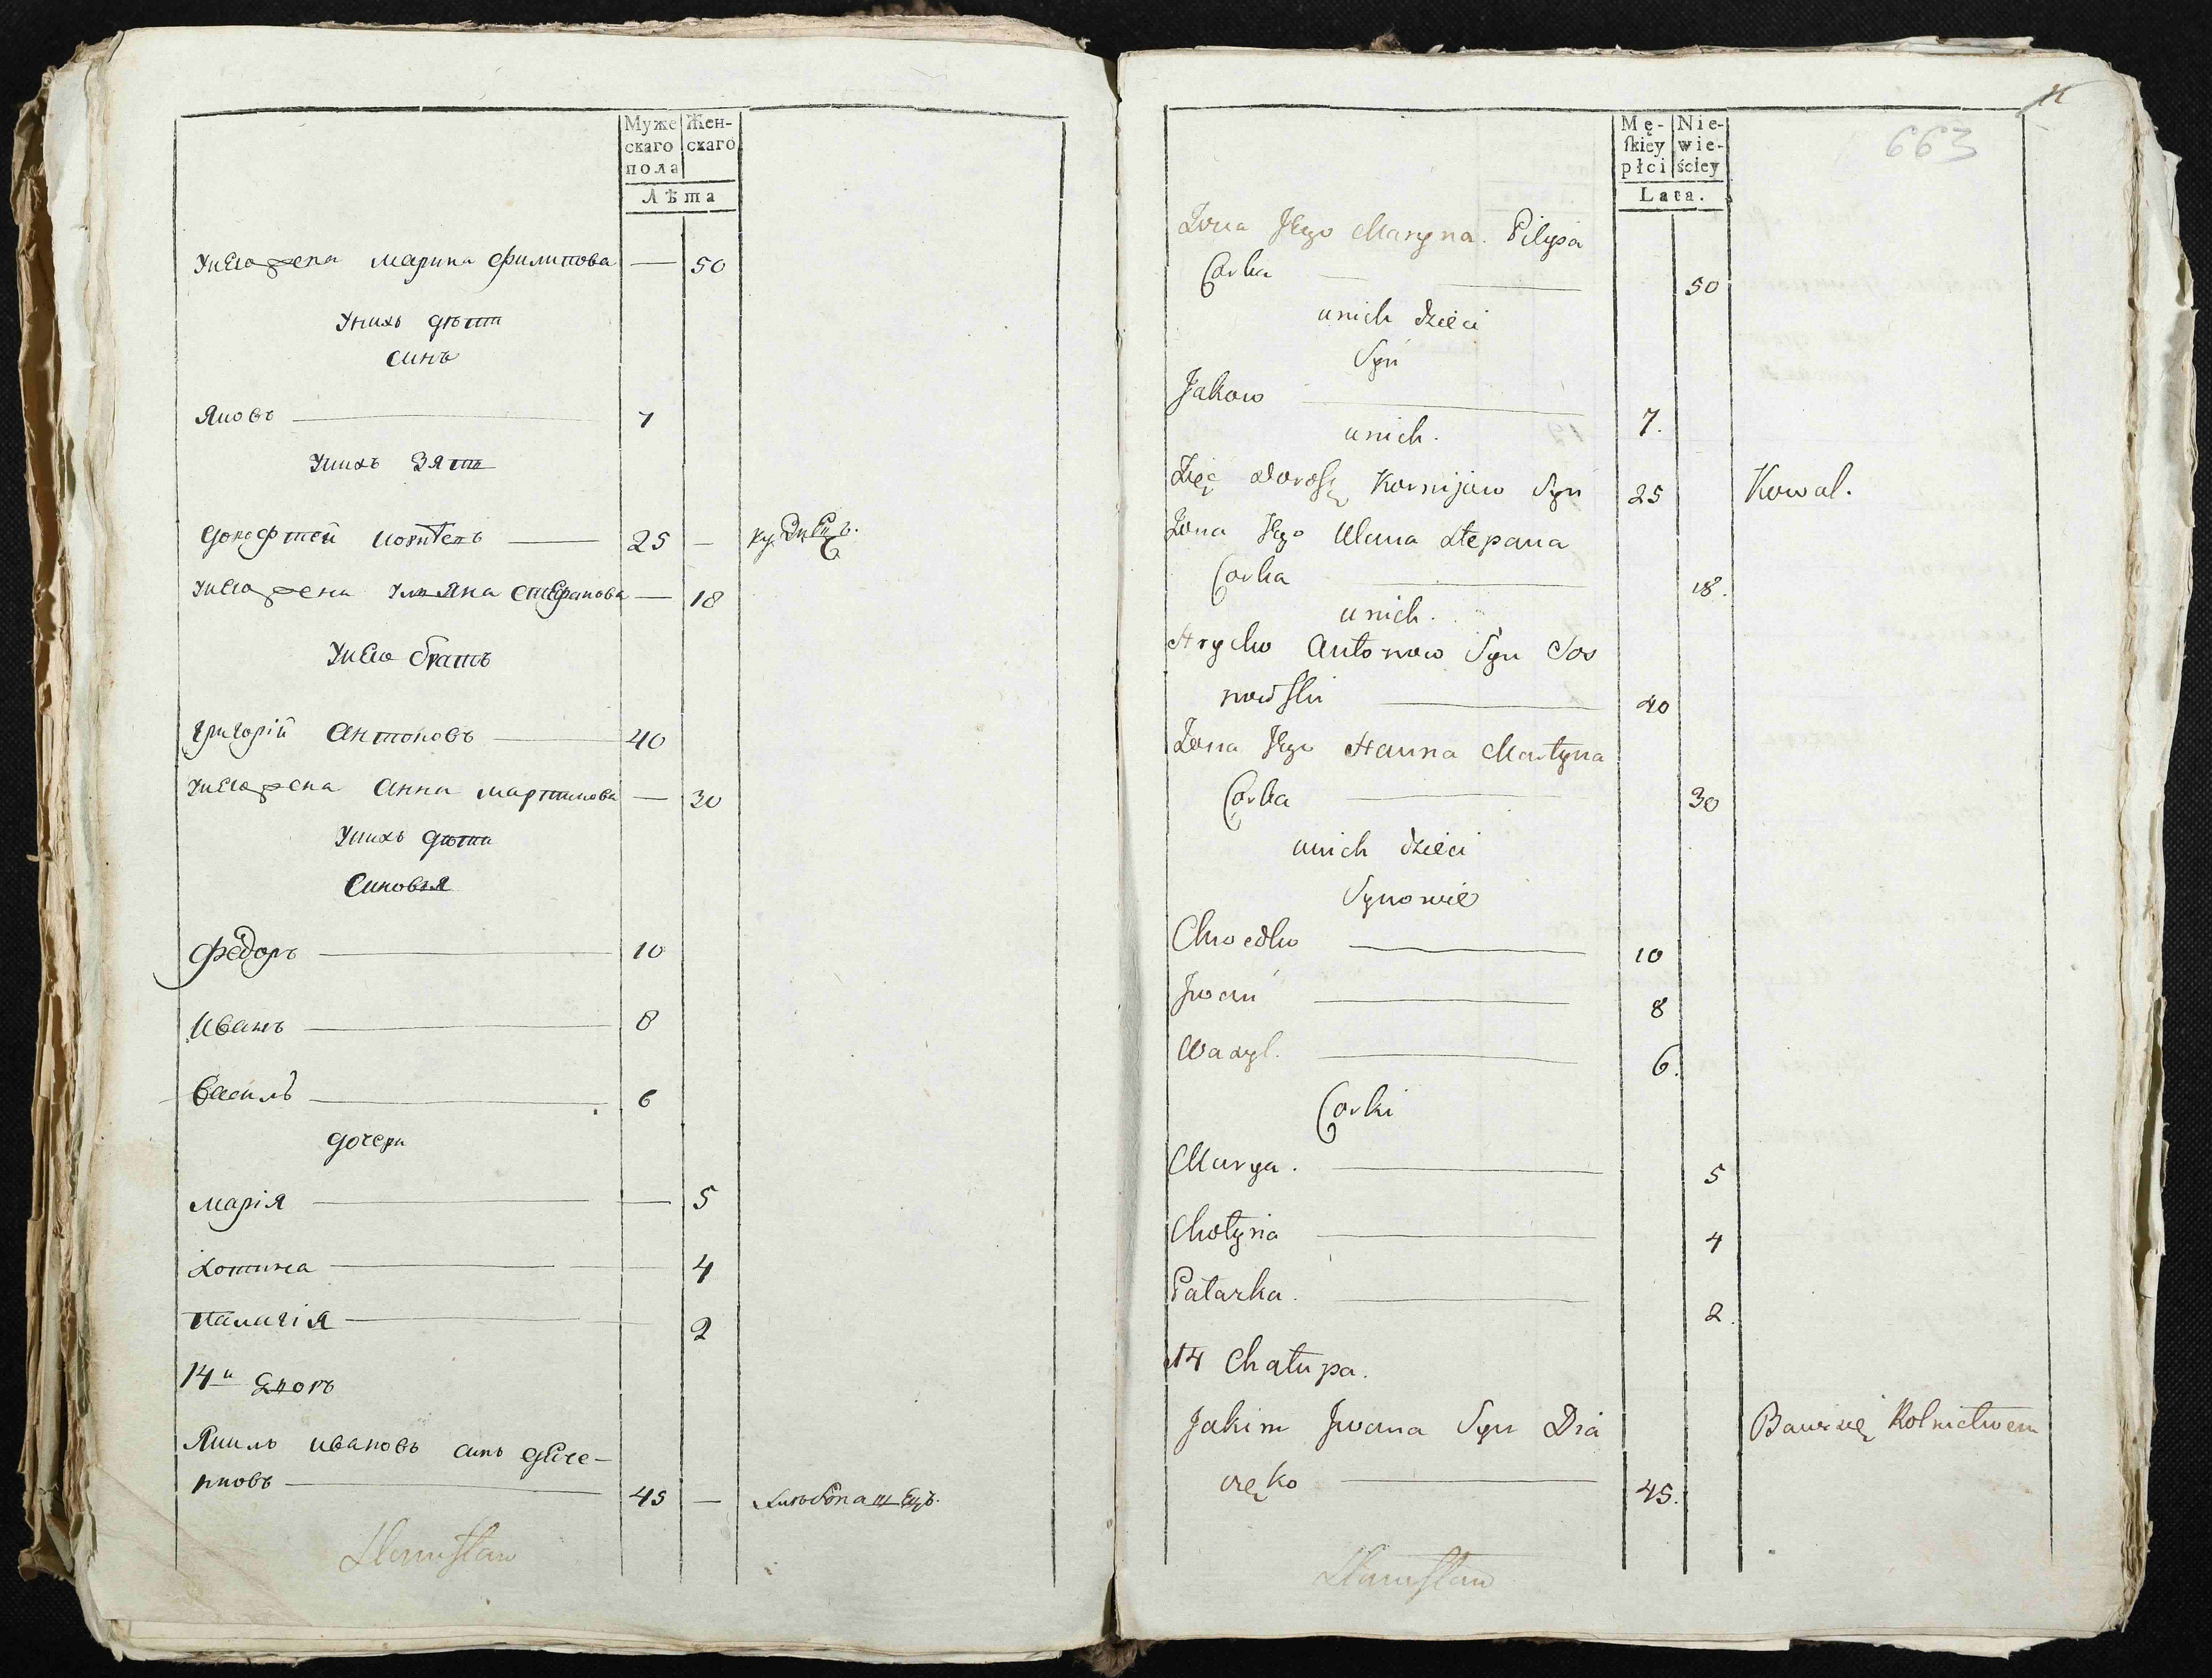 Муже
скаго
пола
Жен-
скаго
Лѣта
Унего жена Марина Филипова — 50
Унихъ дѣти
синъ
Яковъ 7
Унихъ Зять
25 —
Унего жена Ульяна Стефанова — 18
Унего братъ
Григорій Антоновъ 40
Унего жена Анна Мартинова — 30
Унихъ дѣти
Синовья
Федоръ 10
Иванъ 8
Василь 6
дочери
Марія — 5
Хотина 4
2
14й Дворъ
Якимъ Ивановъ синъ
45 —
Mę-
ſkiey
płci
Nie-
wie-
ściey
Lata.
11
663
Żona Jego Maryna. Pilypa
Corka 50
unich dzieci
Syn
Jakow 7.
unich.
Zięć Kornijow Syn 25 Kowal.
Żona Jego Ulana Stepana
Corka 18.
unich.
Hrycko Antonow Syn Sos
nowſki 40
Żona Jego Hanna Martyna
Corka 30
unich dzieci
Synowie
Chwedko 10
Jwan 8
Wasyl. 6.
Corki
Marya. 5
Chotyna 4
Palazka. 2.
14 Chałupa.
Jakim Jwana Syn Dia
częko 45.
Bawi się Rolnictwem